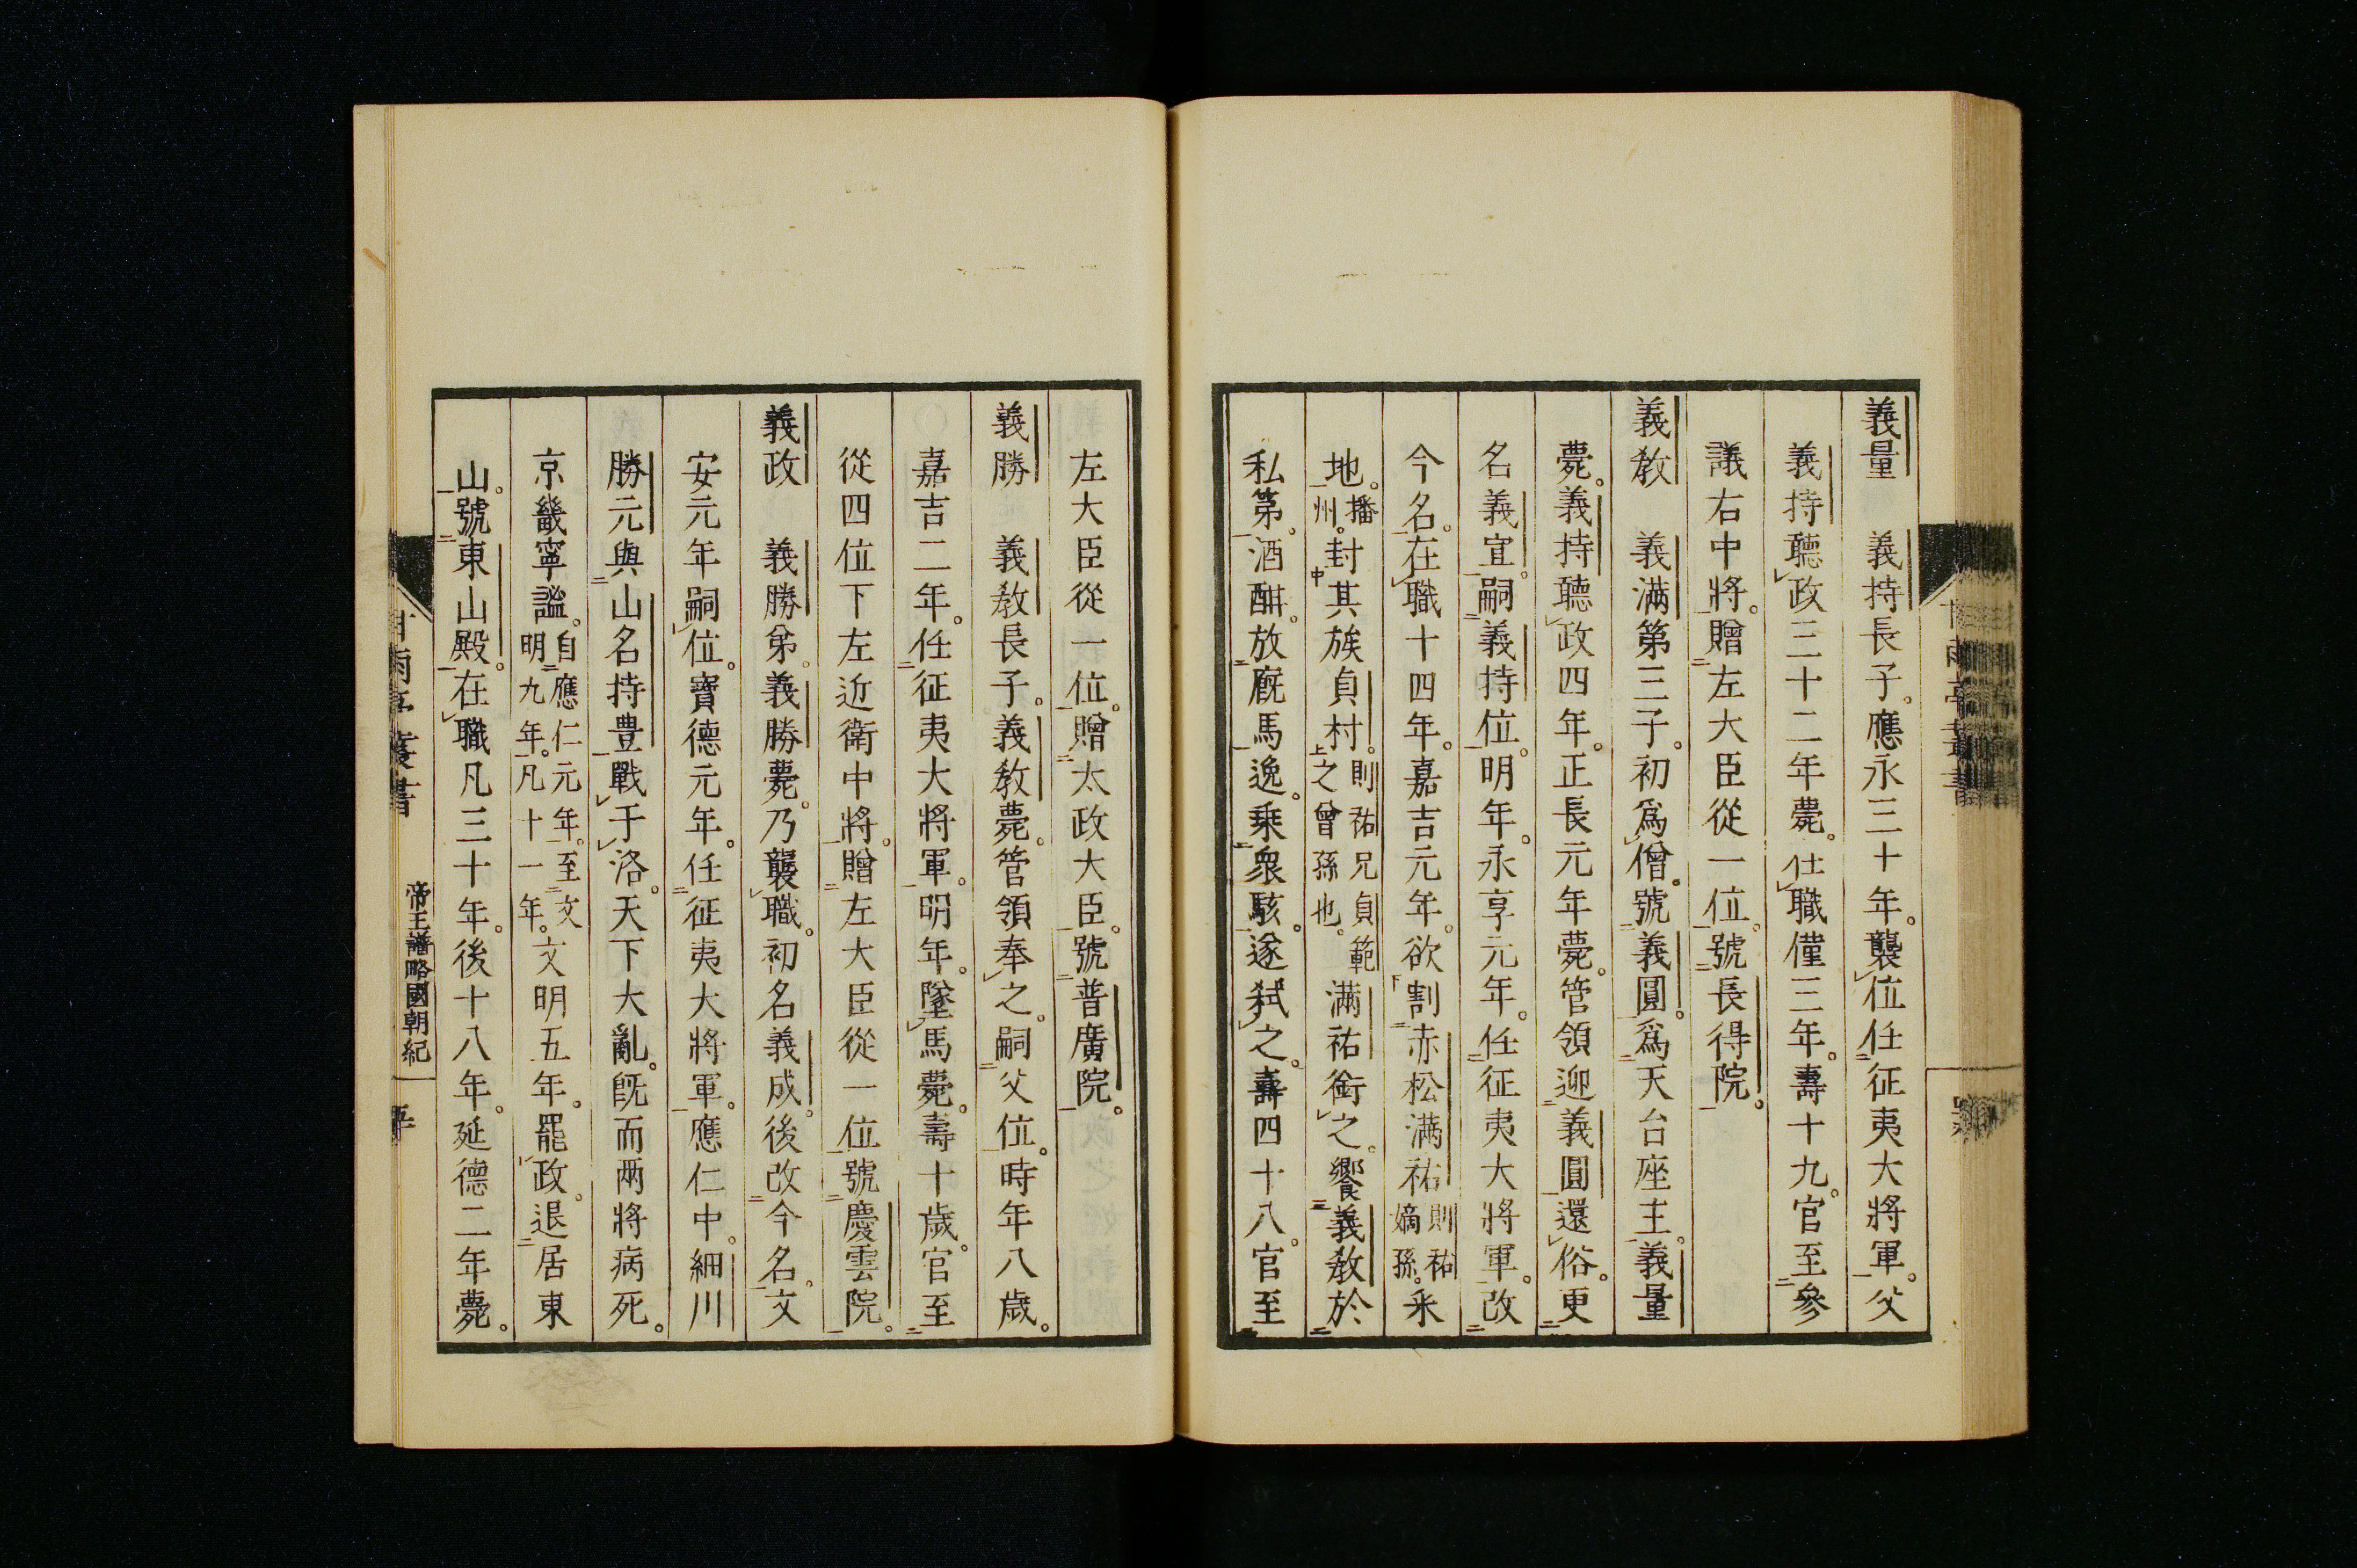 義量　義持長子。應永三十年。襲位任征夷大將軍。父
義持聽政三十二年薨。在職僅三年。壽十九。官至參
議右中將。贈左大臣從一位。號長得院。
義教　義滿第三子。初爲僧。號義圓。爲天台座主。義量
薨。義持聽政四年。正長元年薨。管領迎義圓還俗。更
名義宣。嗣義持位。明年。永享元年。任征夷大將軍。改
今名。在職十四年。嘉吉元年。欲割赤松滿祐則祐嫡孫。采
地。播州。封其族貞村。則祐兄貞範之曾孫也。滿祐銜之。饗義教於
私第。酒酣。放廐馬逸。乘衆駭。遂弑之。壽四十八。官至
左大臣從一位。贈太政大臣。號普廣院。
義勝　義教長子。義教薨。管領奉之。嗣父位。時年八歲。
嘉吉二年。任征夷大將軍。明年。墜馬薨。壽十歲。官至
從四位下左近衛中將。贈左大臣從一位號慶雲院。
義政　義勝弟。義勝薨。乃襲職。初名義成。後改今名。文
安元年嗣位。寶德元年。任征夷大將軍。應仁中。細川
勝元與山名持豊戰于洛。天下大亂。旣而兩將病死。
京畿寧謐。自應仁元年。至文明九年。凡十一年。文明五年。罷政。退居東
山。號東山殿。在職凡三十年。後十八年。延德二年薨。
帝王譜略國朝紀